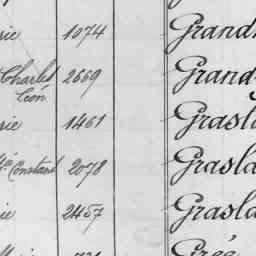 rie 1074 Grand
Charles 2669 Grand
Léon
rie 1461 Grasl
Constant 2078 Grasla
ie 2457 Grasla
Gré